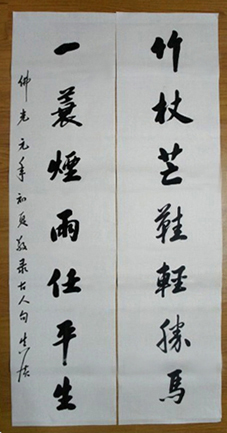 竹杖芒鞋輕勝馬
一蓑煙雨任平生
佛光元年初夏敬录古人句